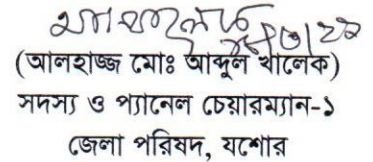 (আলহাজ্জ মোঃ আব্দুল খালেক)
সদস্য ও প্যানেল চেয়ারম্যান-১
জেলা পরিষদ, যশোর